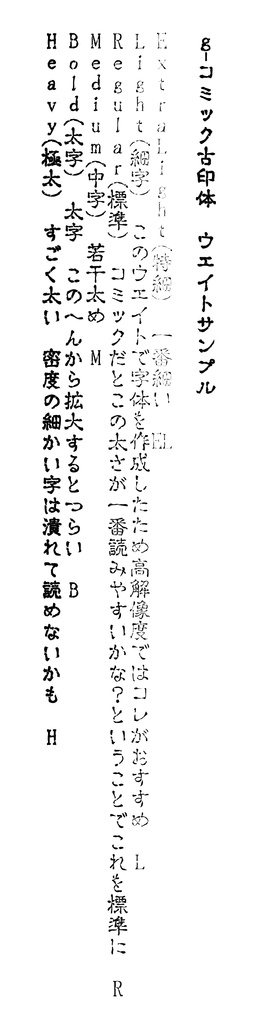 g-コミック古印体　ウエイトサンプル
ExtraLight(特細)　一番細い　EL
Light(細字)　このウエイトで字体を作成したため高解像度ではコレがおすすめ　L
Regular(標準)　コミックだとこの太さが一番読みやすいかな?ということでこれを標準に　R
Medium(中字)　若干太め　M
Bold(太字)　太字　このへんから拡大するとつらい　B
Heavy(極太)　すごく太い　密度の細かい字は潰れて読めないかも　H